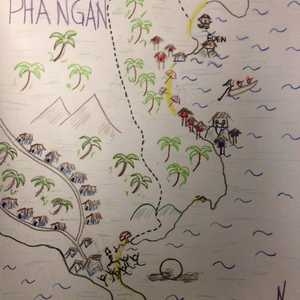 PHANGAN
EDEN
N